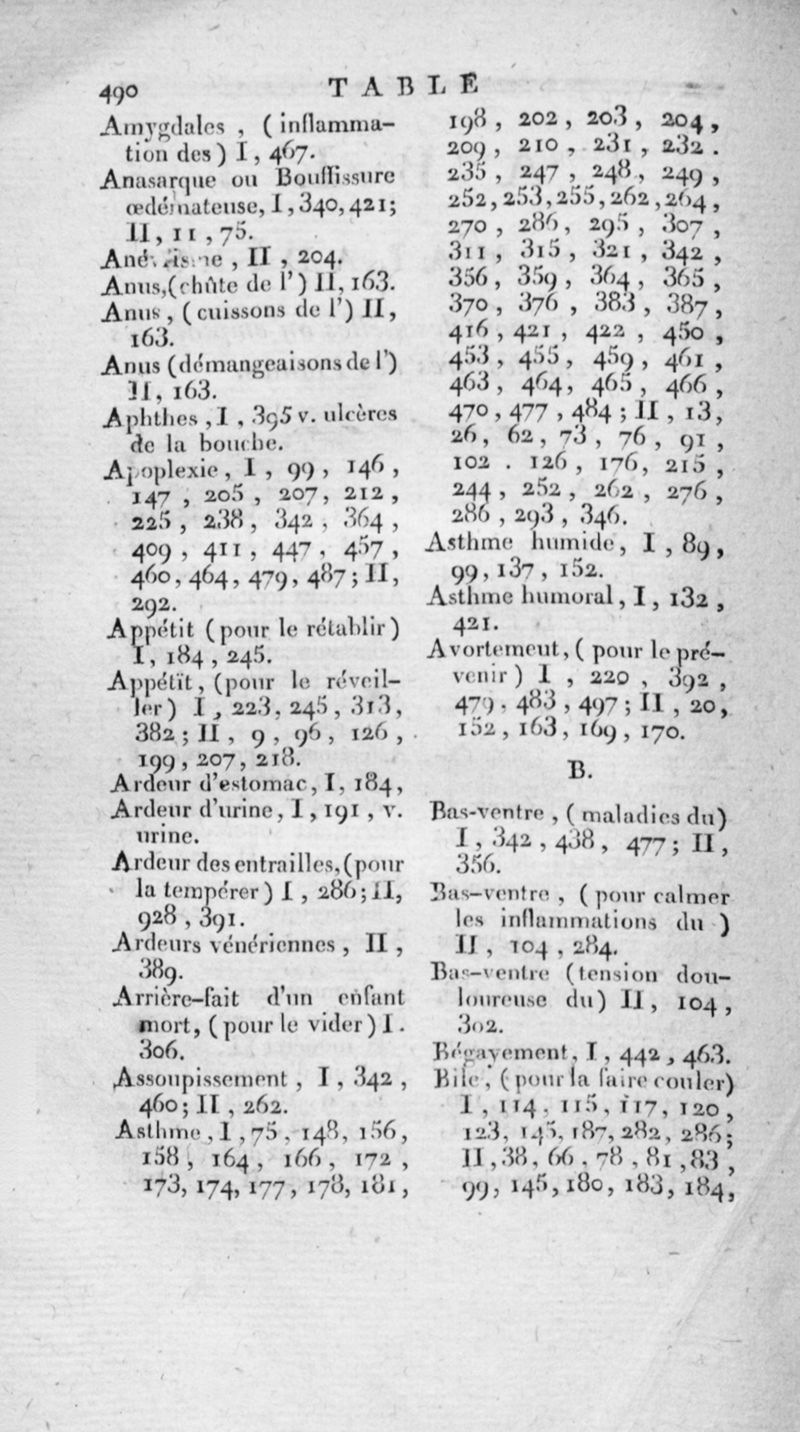 490 TABLE
Amygdales , ( inflamma-
tion des ) I , 467.
Anasarque ou Bouffissure
œdémateuse, I , 340, 421;
II, 11 , 75.
II , 204.
Anus,(chûte de l') II, 163.
Anus , ( cuissons de l') II,
163.
Anus (démangeaisons de l')
II, 163.
Aphthes , I , 395 v. ulcères
de la bouche.
Apoplexie, I , 99 , 146 ,
147 , 205 , 207, 212 ,
225 , 238 , 342 , 364 ,
409 , 411 , 447 , 457 ,
460, 464, 479, 487 ; II,
292.
Appétit ( pour le rétablir )
I, 184 , 245.
Appétit, (pour le réveil-
ler) I , 223, 245 , 313,
382 ; II , 9 , 96 , 126 ,
199 , 207, 218.
Ardeur d'estomac, I, 184,
Ardeur d'urine, I , 191 , v.
urine.
Ardeur des entrailles, (pour
la tempérer ) I , 286 ; II,
928 , 391.
Ardeurs vénériennes , II ,
389.
Arrière-fait d'un enfant
mort, ( pour le vider ) I .
306.
Assoupissement , I , 342 ,
460 ; II , 262.
Asthme , I , 75 , 148, 156,
158 , 164 , 166 , 172 ,
173, 174, 177 , 178, 181 ,
198 , 202 , 203 , 204 ,
209 , 210 , 231 , 232 .
235 , 247 , 248 , 249 ,
252, 253, 255, 262 , 264 ,
270 , 286, 295 , 307 ,
311 , 315 , 321 , 342 ,
356, 359 , 364 , 365 ,
370 , 376 , 383 , 387 ,
416 , 421 , 422 , 450 ,
453 , 455 , 459 , 461 ,
463 , 464, 465 , 466 ,
470 , 477 , 484 ; II , 13,
26, 62 , 73 , 76 , 91 ,
102 . 126 , 176, 215 ,
244 , 252 , 262 , 276 ,
286 , 293 , 346.
Asthme humide, I , 89 ,
99 , 137 , 152.
Asthme humoral , I , 132 ,
421.
Avortement, ( pour le pré-
venir ) I , 220 , 392 ,
479 , 483 , 497 ; II , 20,
152 , 163 , 169 , 170.
B.
Bas-ventre , ( maladies du)
I , 342 , 438 , 477 ; II ,
356.
Bas-ventre , ( pour calmer
les inflammations du )
II , 104 , 284.
Bas-ventre (tension dou-
loureuse du) II, 104 ,
302.
Bégayement, I , 442 , 463.
Bile , ( pour la faire couler)
I , 114 , 115 , 117, 120 ,
123, 145, 187, 282, 286;
II , 38 , 66 , 78 , 81 , 83 ,
99, 145, 180, 183, 184,